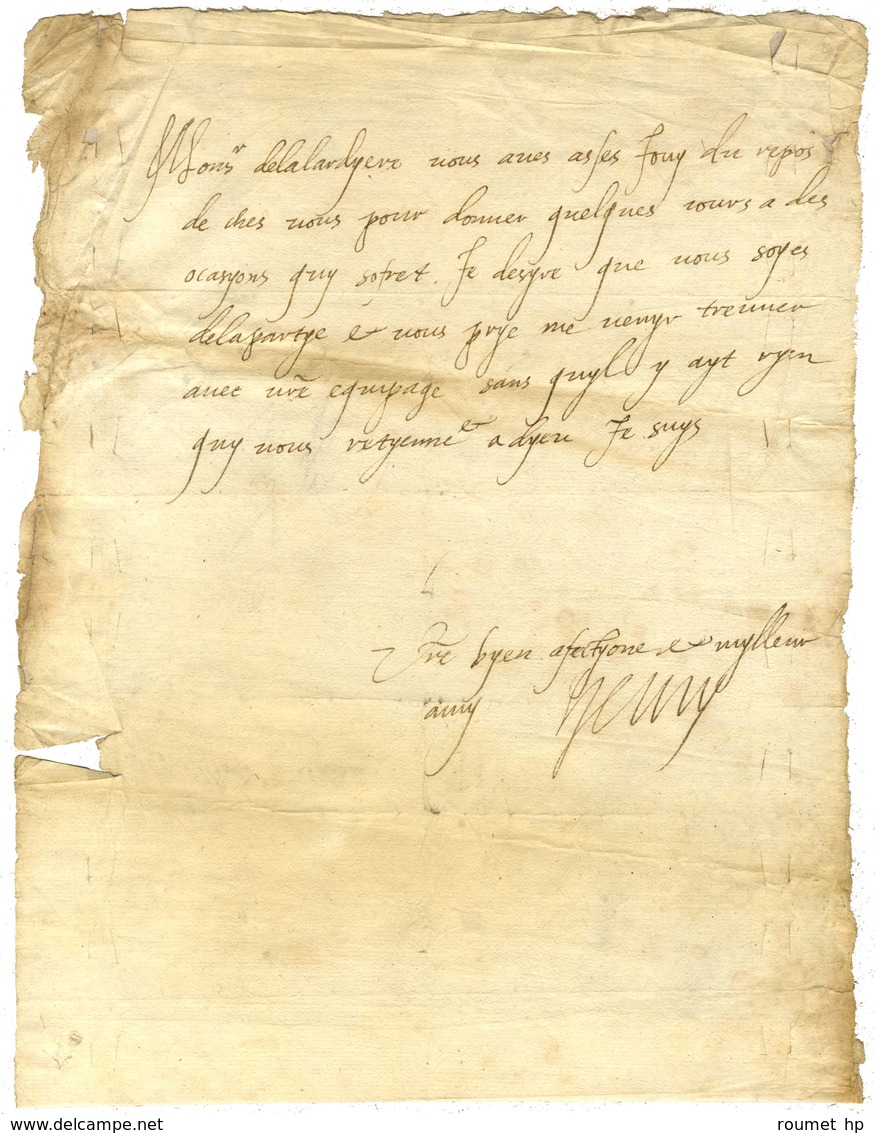 Monsr delalardyere vous aves asses Jouy du repos
de ches vous pour donner quelques jours a des
ocasyons quy sofret. Je desyre que vous soyes
delapartye & vous prye me venyr treuuer
auec vre equipage sans quyl y ayt ryen
quy vous retyenne & adyeu Je suys
Vre byen afectyone & mylleur
amy Henry
www.delcampe.net
roumet hp